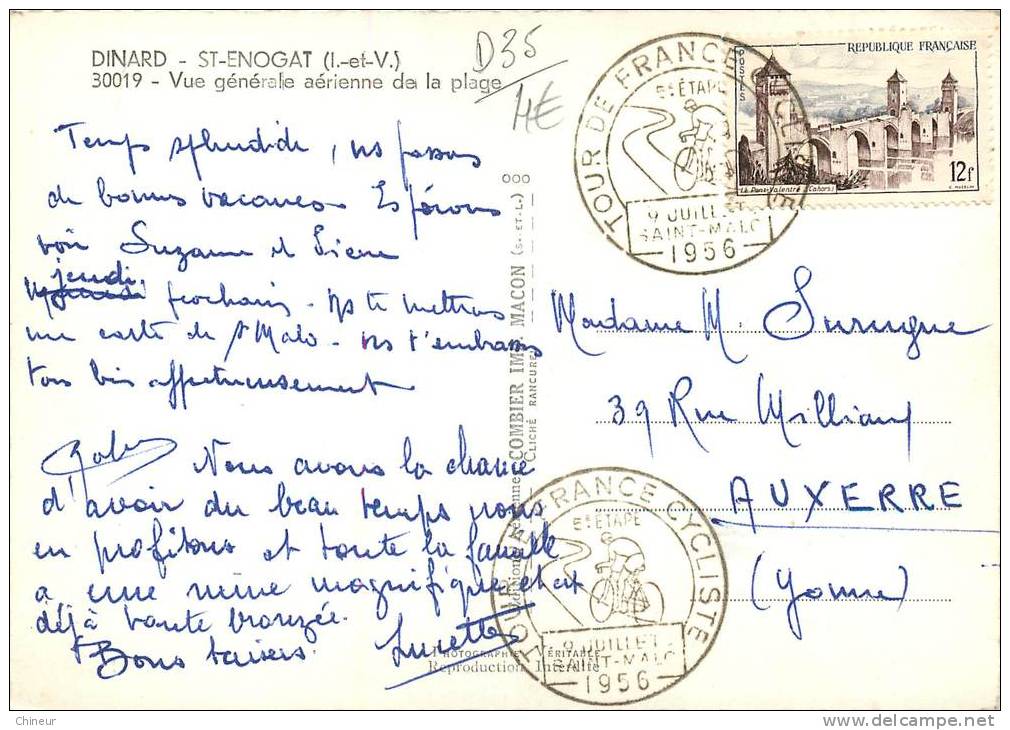 DINARD - ST-ENOGAT (I.-et-V.)
30019 - Vue générale aérienne de la plage
D35
4€
Temps splendide, ns passons
de bonnes vacances Espérons
voir Suzanne et
jeudi
prochain - Ns te mettrons
une carte de St Malo - ns t'embrassons
tous bien affectueusement
Nous avons la chance
d'avoir du beau temps nous
en profitons et toute la famille
a une mine magnifique et est
déjà toute bronzée.
Bons baisers. Lucette
COMBIER IMP. MACON (S.-ET-L.)
CLICHÉ RANCUREL
PHOTOGRAPHIE VÉRITABLE
Reproduction Interdite
TOUR DE FRANCE CYCLISTE
5e ÉTAPE
9 JUILLET
SAINT-MALO
1956
POSTES
REPUBLIQUE FRANÇAISE
Le Pont Valentré (Cahors)
12f
Madame M. Surugue
39 Rue Milliaux
AUXERRE
(Yonne)
TOUR DE FRANCE CYCLISTE
5e ÉTAPE
9 JUILLET
SAINT-MALO
1956
Chineur
delcampe.net